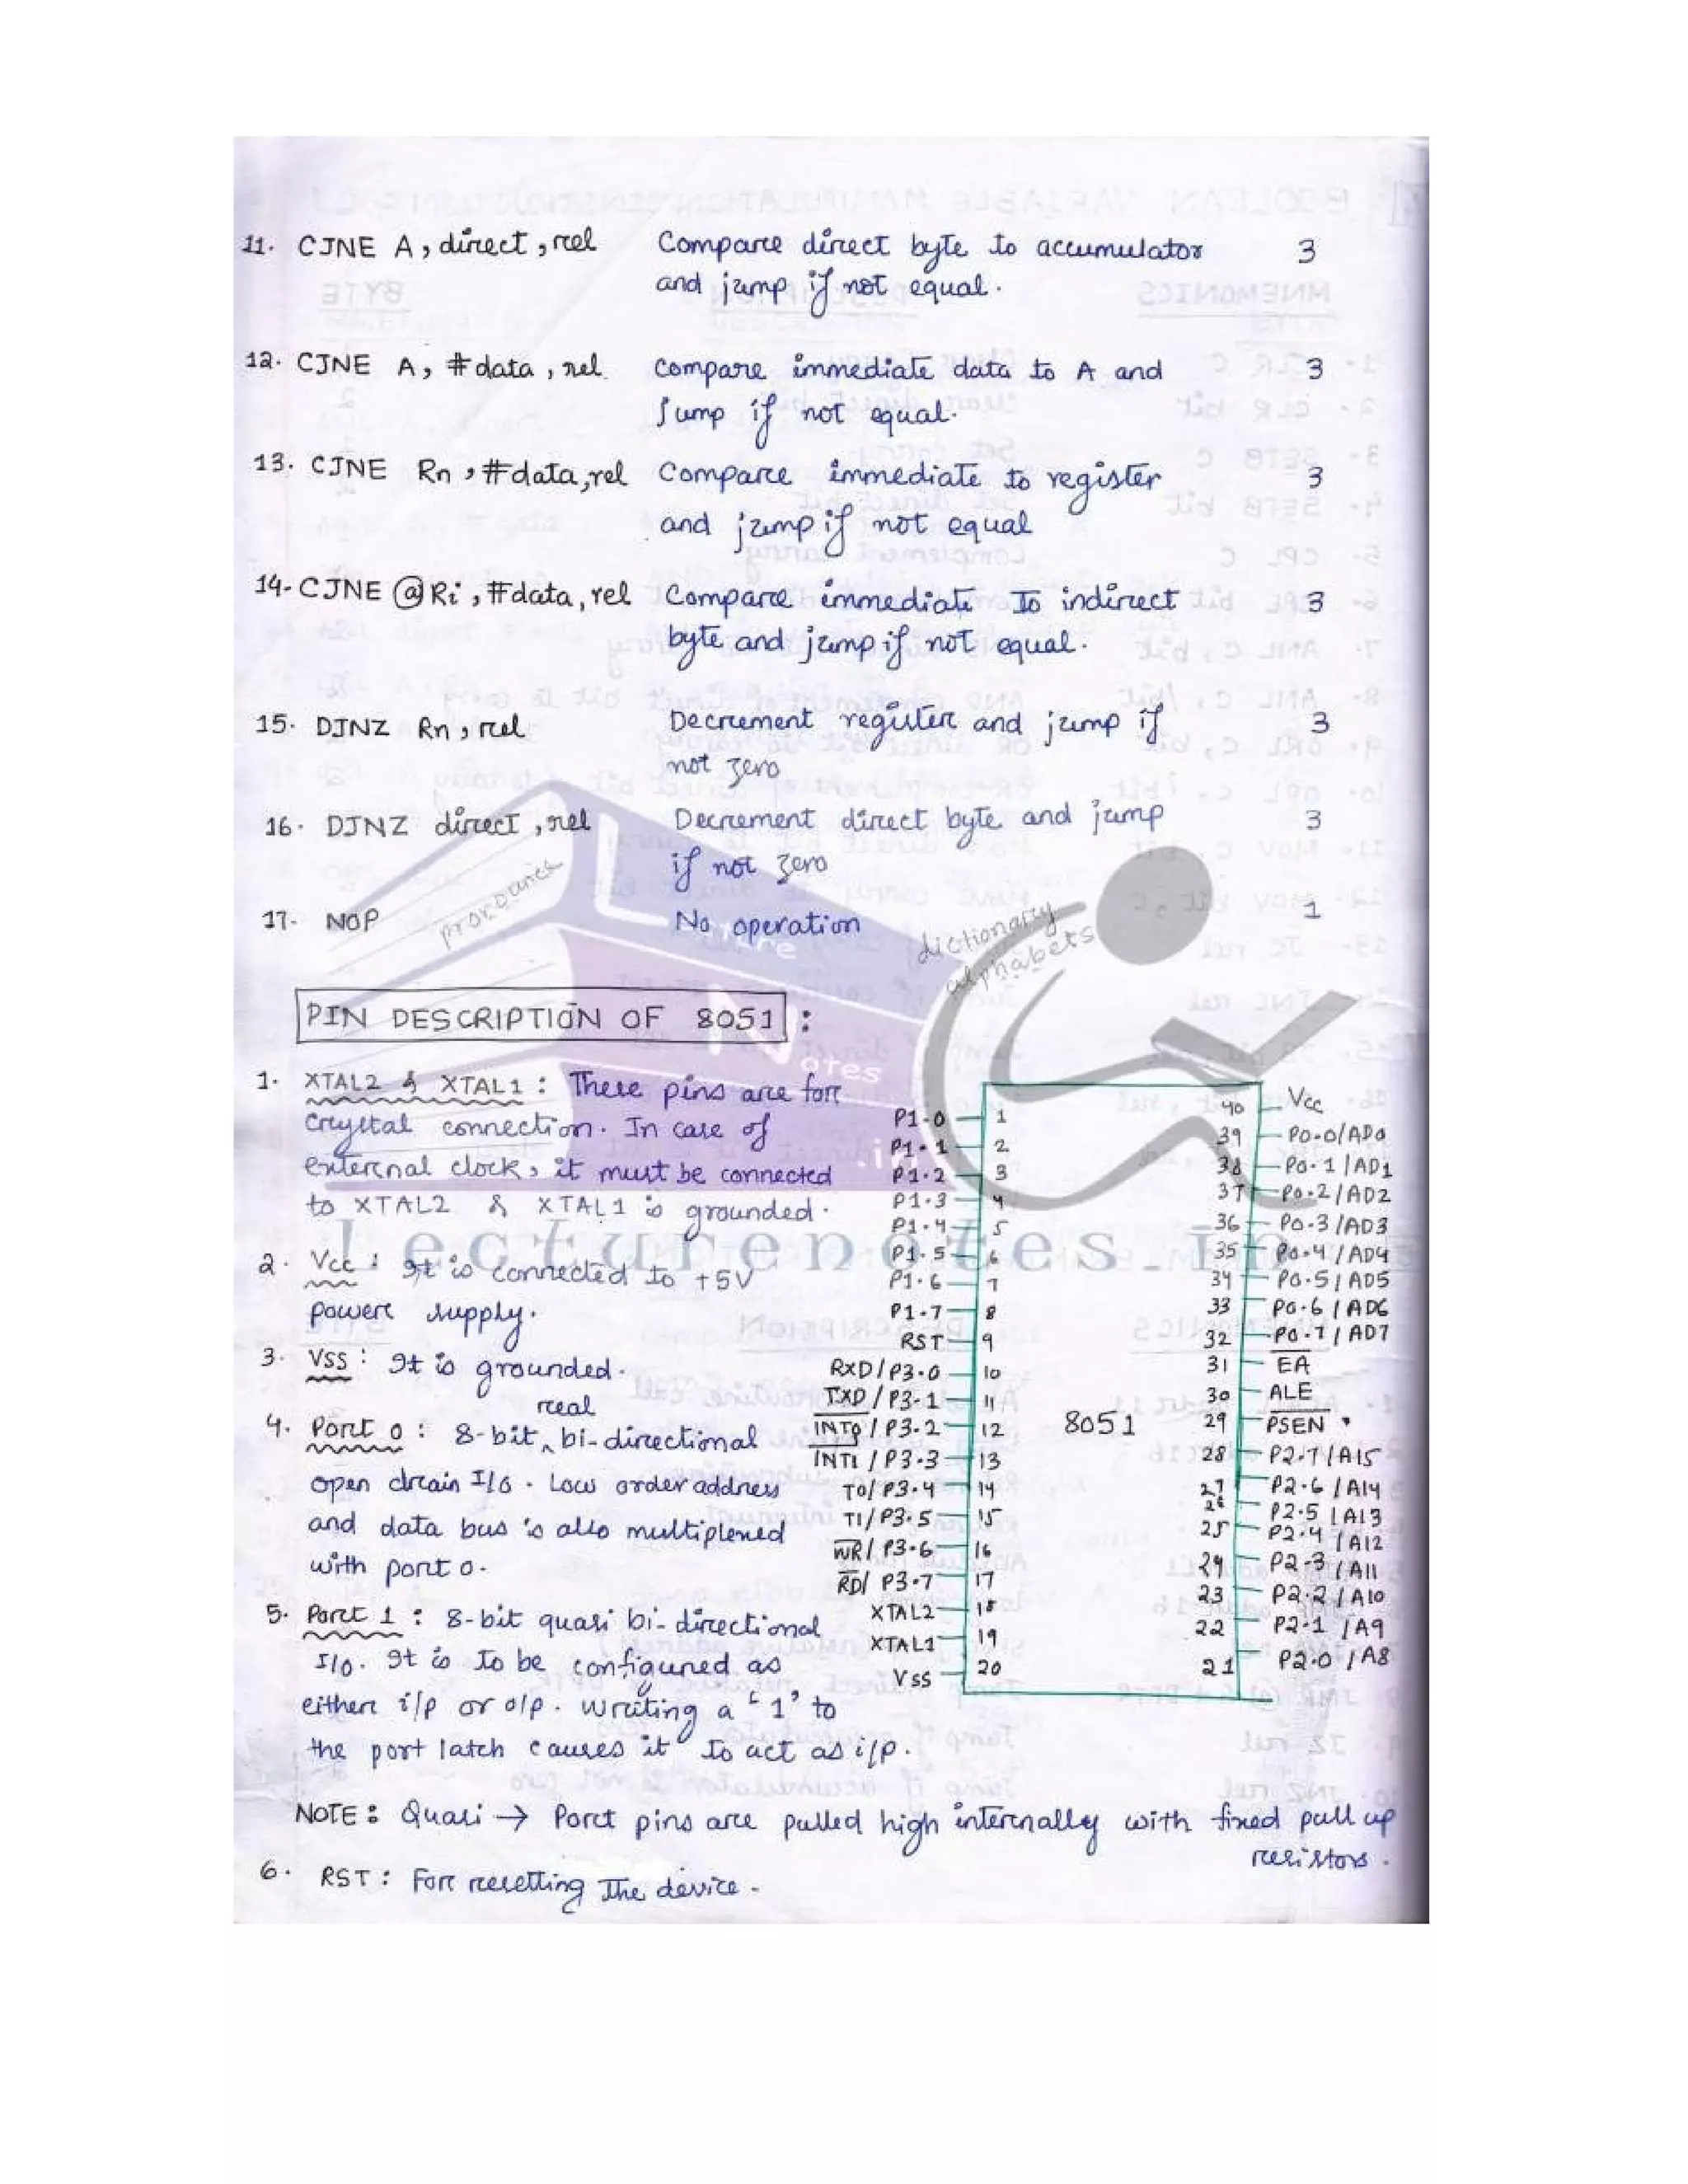 11. CJNE A, direct, rel Compare direct byte to accumulator 3
and jump if not equal.
12. CJNE A, #data, rel Compare immediate data to A and 3
Jump if not equal.
13. CJNE Rn, #data, rel Compare immediate to register 3
and jump if not equal
14. CJNE @Ri, #data, rel Compare immediate To indirect 3
byte and jump if not equal.
15. DJNZ Rn, rel Decrement register and jump if 3
not zero
16. DJNZ direct, rel Decrement direct byte and jump 3
if not zero
17. NOP No operation 1
PIN DESCRIPTION OF 8051 :
1. XTAL2 & XTAL1 : These pins are for
Crystal connection. In case of
external clock, it must be connected
to XTAL2 & XTAL1 is grounded.
2. Vcc : It is connected to +5V
power supply.
3. VSS : It is grounded.
real
4. Port 0 : 8-bit ^ bi-directional
open drain I/O. Low order address
and data bus is also multiplexed
with port 0.
5. Port 1 : 8-bit quasi bi-directional
I/O. It is To be configured as
either i/p or o/p. Writing a '1' to
the port latch causes it To act as i/p.
P1.0 1 40 Vcc
P1.1 2 39 P0.0/AD0
P1.2 3 38 P0.1/AD1
P1.3 4 37 P0.2/AD2
P1.4 5 36 P0.3/AD3
P1.5 6 35 P0.4/AD4
P1.6 7 34 P0.5/AD5
P1.7 8 33 P0.6/AD6
RST 9 32 P0.7/AD7
RXD/P3.0 10 31 E̅A̅
TXD/P3.1 11 30 ALE
I̅N̅T̅0̅/P3.2 12 8051 29 P̅S̅E̅N̅
I̅N̅T̅1̅/P3.3 13 28 P2.7/A15
T0/P3.4 14 27 P2.6/A14
T1/P3.5 15 26 P2.5/A13
W̅R̅/P3.6 16 25 P2.4/A12
R̅D̅/P3.7 17 24 P2.3/A11
XTAL2 18 23 P2.2/A10
XTAL1 19 22 P2.1/A9
Vss 20 21 P2.0/A8
NOTE : Quasi → Port pins are pulled high internally with fixed pull up
resistors.
6. RST : For resetting The device.
Lecture
Notes
.in
pronounce
dictionary
alphabets
Lecturenotes.in